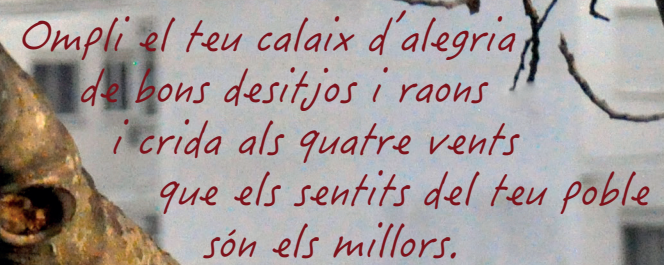 Ompli el teu calaix d'alegria
de bons desitjos i raons
i crida als quatre vents
que els sentits del teu poble
són els millors.